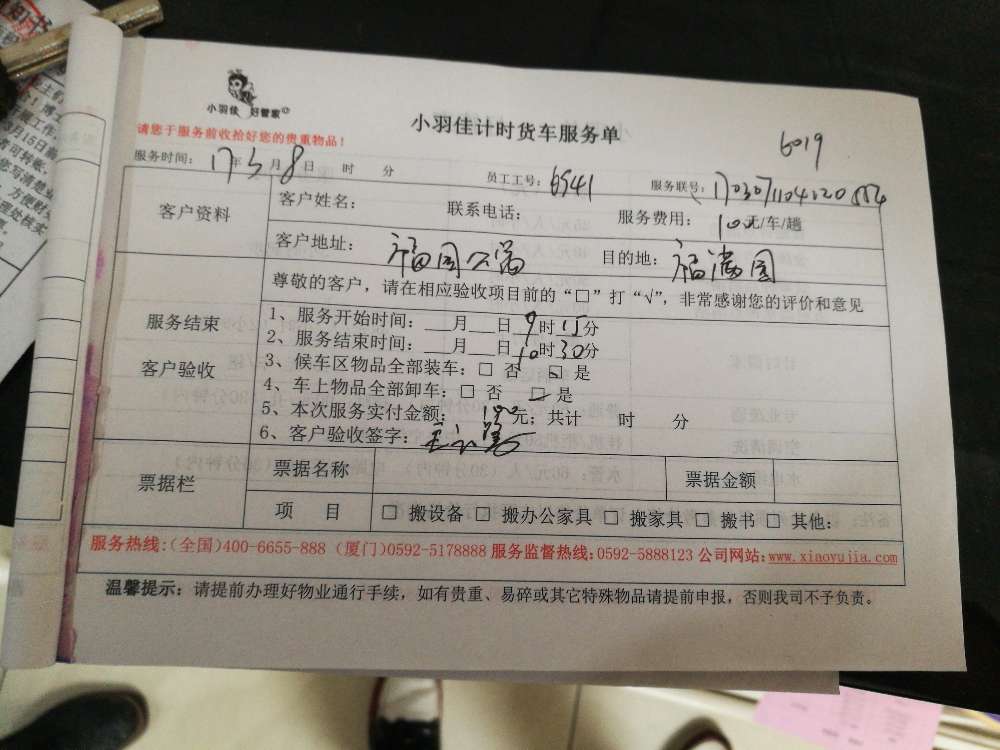 小羽佳 好管家
小羽佳计时货车服务单
6019
请您于服务前收拾好您的贵重物品！
服务时间：17年3月8日 时 分 员工工号：6941 服务联号：
客户资料 客户姓名： 联系电话： 服务费用： 元/车/趟
客户地址：福园公寓 目的地：福满园
尊敬的客户，请在相应验收项目前的“□”打“√”，非常感谢您的评价和意见
服务结束
客户验收
1、服务开始时间：___月___日9时15分
2、服务结束时间：___月___日10时30分
3、候车区物品全部装车：□ 否 □ 是
4、车上物品全部卸车：□ 否 □ 是
5、本次服务实付金额：100元；共计 时 分
6、客户验收签字：
票据栏 票据名称 票据金额
项 目 □ 搬设备 □ 搬办公家具 □ 搬家具 □ 搬书 □ 其他：
服务热线：(全国)400-6655-888 (厦门)0592-5178888 服务监督热线：0592-5888123 公司网站：www.xiaoyujia.com
温馨提示：请提前办理好物业通行手续，如有贵重、易碎或其它特殊物品请提前申报，否则我司不予负责。